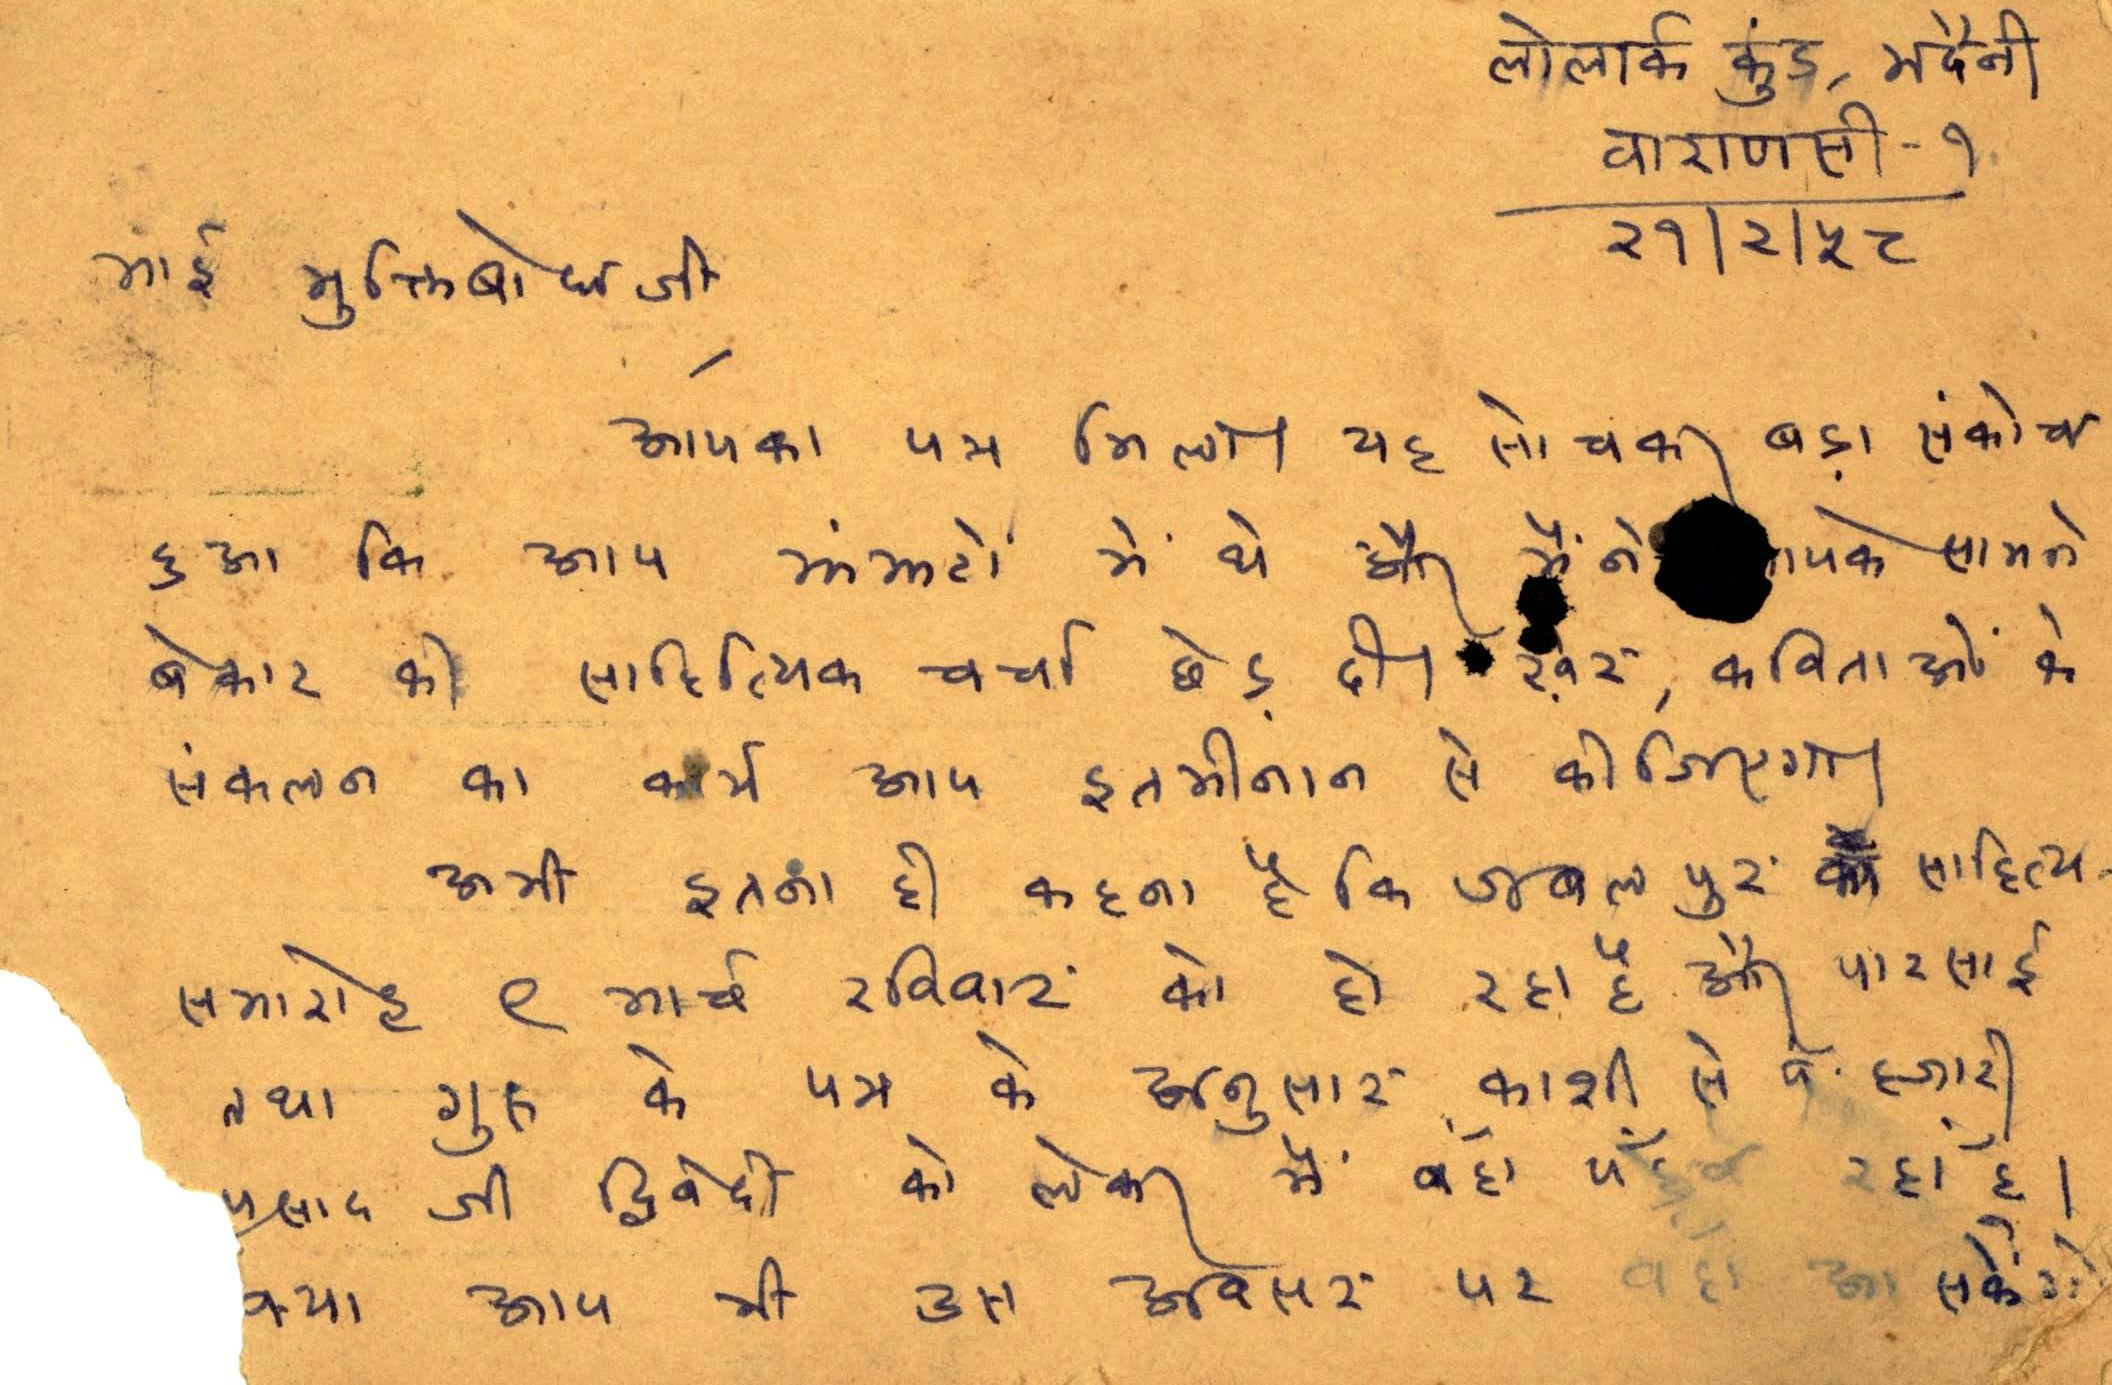 लोलार्क कुंड, भदैनी
वाराणसी-१
२१/२/५८
भाई मुक्तिबोध जी
आपका पत्र मिला। यह सोचकर बड़ा संकोच
हुआ कि आप झंझटों में थे और मैंने आपके सामने
बेकार की साहित्यिक चर्चा छेड़ दी। खैर, कविताओं के
संकलन का कार्य आप इतमीनान से कीजिएगा।
अभी इतना ही कहना है कि जबलपुर का साहित्य-
समारोह ९ मार्च रविवार को हो रहा है और पारसाई
तथा गुरु के पत्र के अनुसार काशी से पं. हज़ारी
प्रसाद जी द्विवेदी को लेकर मैं वहाँ पहुँच रहा हूँ।
क्या आप भी उस अवसर पर वहाँ आ सकेंगे